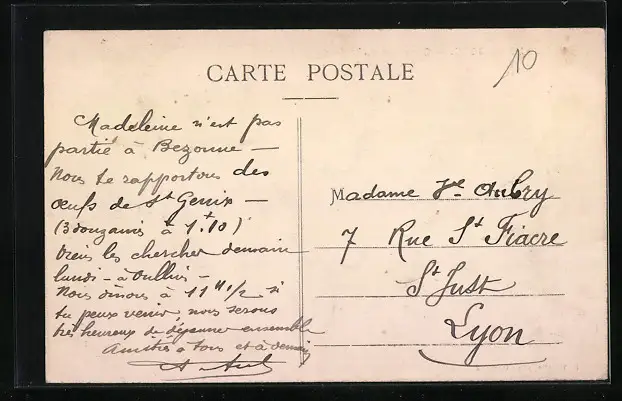 10
CARTE POSTALE
Madeleine n'est pas
partie à Bezonne —
Nous te rapportons des
œufs de St Genix —
(3 douzaines à 1.10)
Viens les chercher demain
lundi - à Oullins -
Nous dînons à 11 H 1/2 si
tu peux venir, nous serons
très heureux de déjeuner ensemble
Amitiés à tous et à demain
Madame Ve Aubry
7 Rue St Fiacre
St Just
Lyon